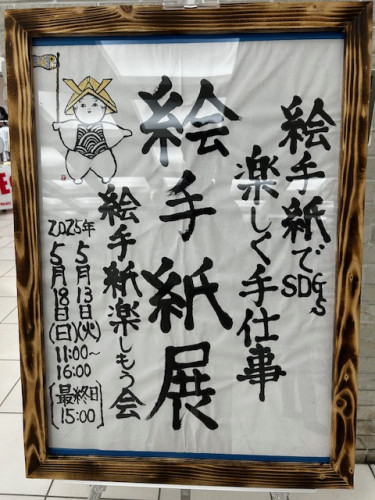 絵手紙でSDGs
楽しく手仕事
絵手紙展
絵手紙楽しもう会
2025年
5月13日(火)
5月18日(日)
11:00~
16:00
[最終日
15:00]